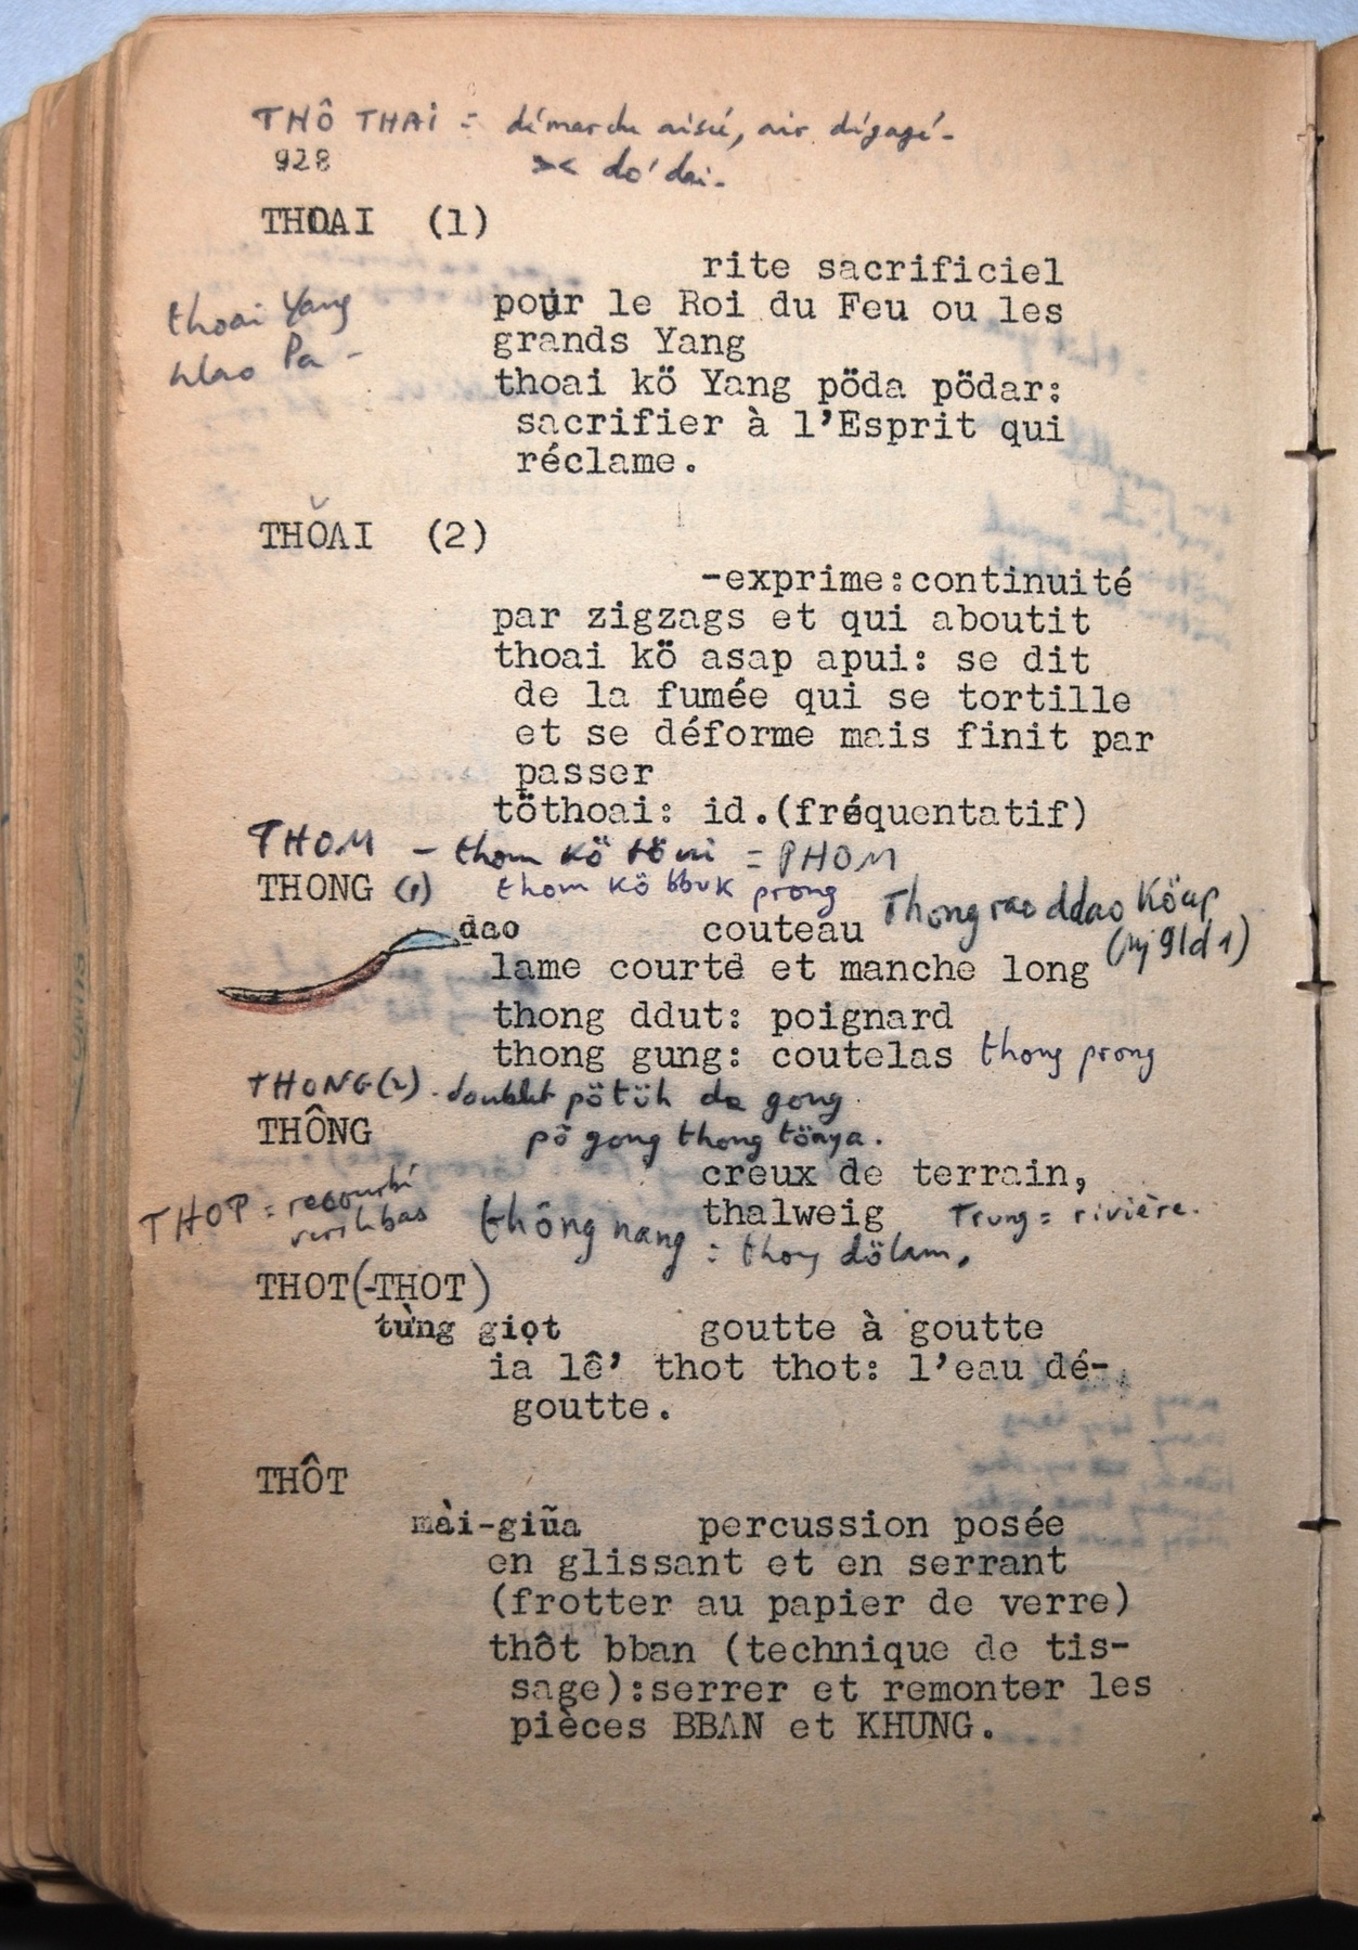 THÔ THAI = démarche aisée, air dégagé-
928
>< do' dai-
THOAI (1)
rite sacrificiel
pour le Roi du Feu ou les
thoai Yang
grands Yang
Pa -
thoai kö Yang pöda pödar:
sacrifier à l'Esprit qui
réclame.
THŎAI (2)
-exprime:continuité
par zigzags et qui aboutit
thoai kö asap apui: se dit
de la fumée qui se tortille
et se déforme mais finit par
passer
töthoai: id.(fréquentatif)
THOM - thom kö = PHOM
THONG (1) thom kö bbuk prong
dao couteau Thong rao ddao Köap
lame courte et manche long
thong ddut: poignard
thong gung: coutelas thong prong
THONG(2) - doublet pötüh de gong
THÔNG pö gong thong tönya.
creux de terrain,
THOP = recourbé
vers le bas
thalweig Trung = rivière.
thông nang : thong dölam.
THOT(-THOT)
từng giọt goutte à goutte
ia lê' thot thot: l'eau dé-
goutte.
THÔT
mài-giũa percussion posée
en glissant et en serrant
(frotter au papier de verre)
thôt bban (technique de tis-
sage):serrer et remonter les
pièces BBAN et KHUNG.